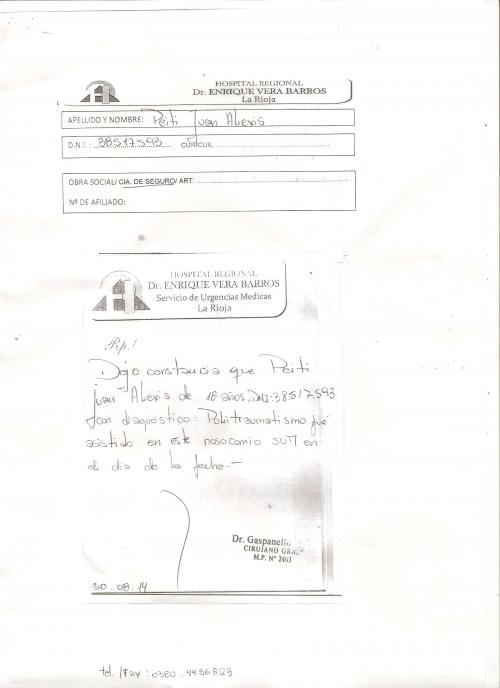 HOSPITAL REGIONAL
Dr. ENRIQUE VERA BARROS
La Rioja
APELLIDO Y NOMBRE: Peiti Juan Alexis
D.N.I.: 38517593 CUIT/CUIL:
OBRA SOCIAL/ CIA. DE SEGURO/ ART:
Nº DE AFILIADO:
HOSPITAL REGIONAL
Dr. ENRIQUE VERA BARROS
Servicio de Urgencias Medicas
La Rioja
Rp!
Dejo constancia que Peiti
Juan Alexis de 18 años, DNI: 38.517.593
con diagnóstico: Politraumatismo fué
asistido en este nosocomio en
el dia de la fecha.-
Dr. Gaspanello
CIRUJANO GRAL
M.P. Nº 2463
30.08.14
tel./Fax: 0380.4436823